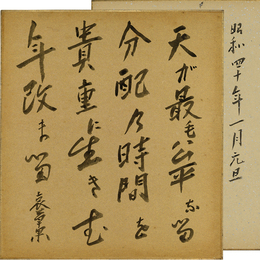 天が最も公平な
分配の時間を
貴重に生き
年改ま
昭和四十年一月元旦